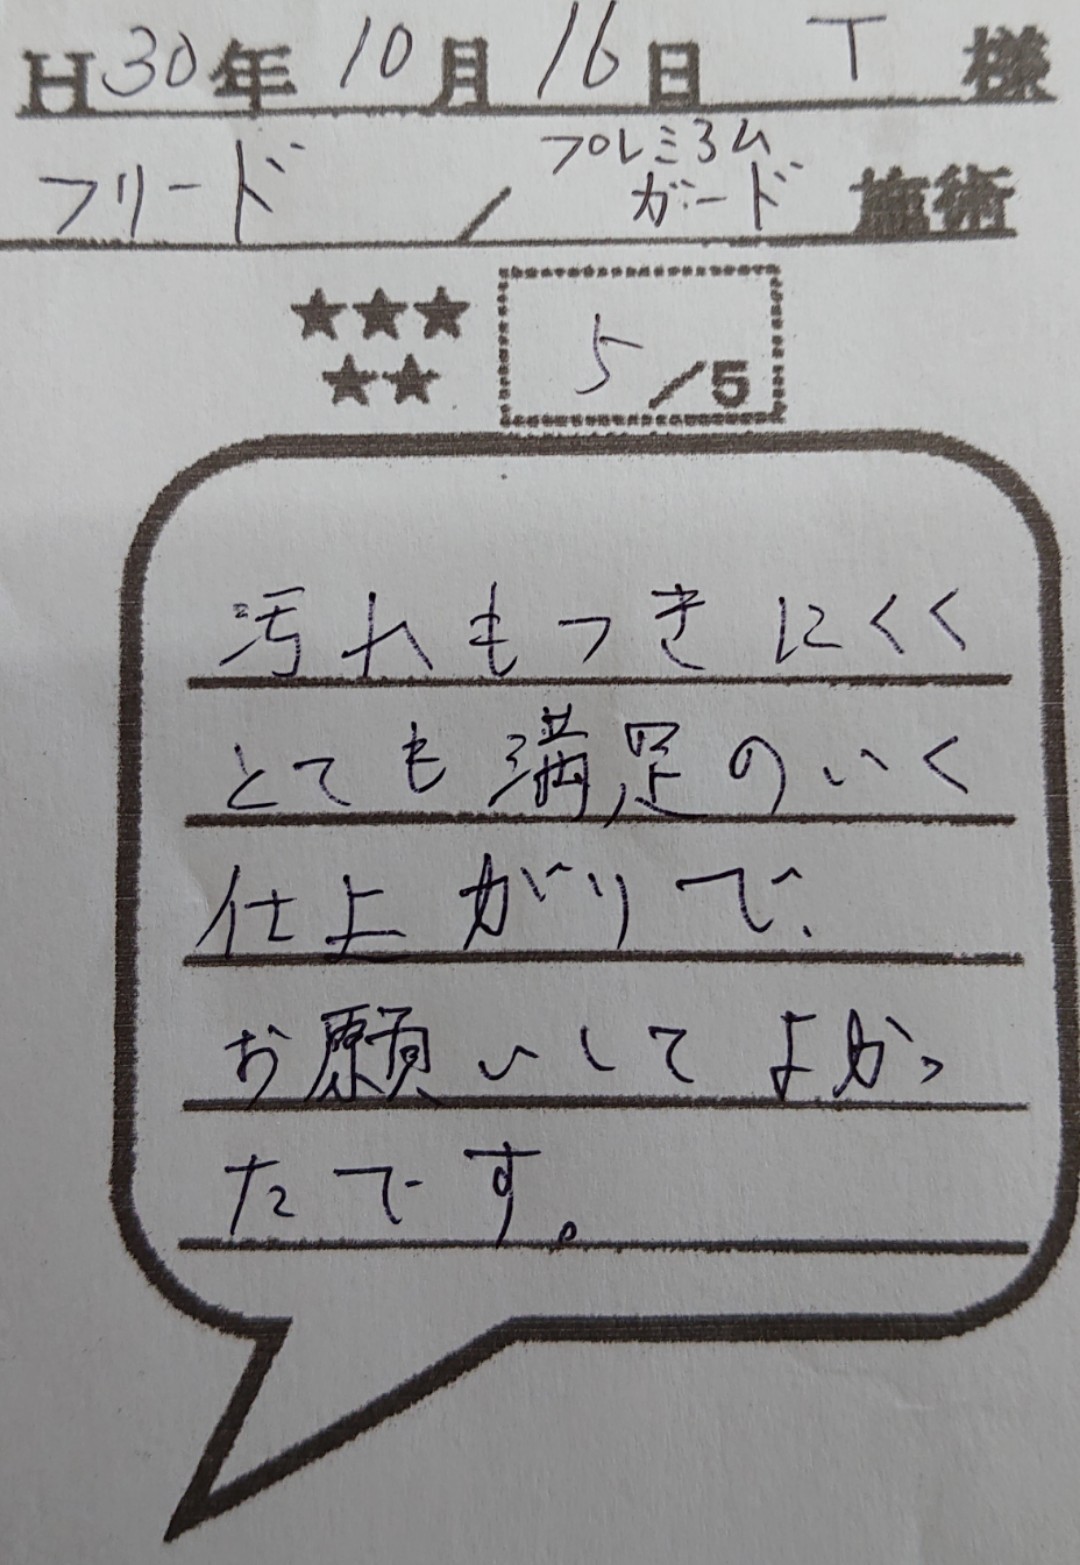 H30年10月16日 T 様
フリード / プレミアムガード 施術
★★★
★★
5/5
汚れもつきにくく
とても満足のいく
仕上がりで、
お願いしてよかっ
たです。